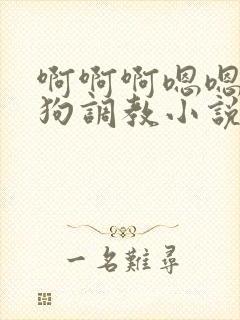 啊啊啊嗯嗯
狗調教小說
一名難尋